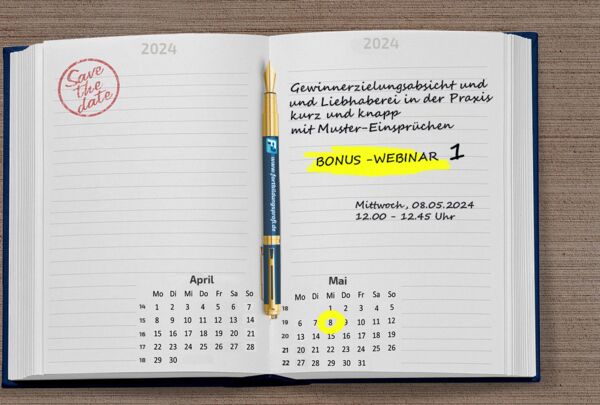 2024
Save
the
date
April
Mo Di Mi Do Fr Sa So
14 1 2 3 4 5 6 7
15 8 9 10 11 12 13 14
16 15 16 17 18 19 20 21
17 22 23 24 25 26 27 28
18 29 30
www.fortbildungsprofi.de
2024
Gewinnerzielungsabsicht und
und Liebhaberei in der Praxis
kurz und knapp
mit Muster-Einsprüchen
BONUS -WEBINAR 1
Mittwoch, 08.05.2024
12.00 - 12.45 Uhr
Mai
Mo Di Mi Do Fr Sa So
18 1 2 3 4 5
19 6 7 8 9 10 11 12
20 13 14 15 16 17 18 19
21 20 21 22 23 24 25 26
22 27 28 29 30 31